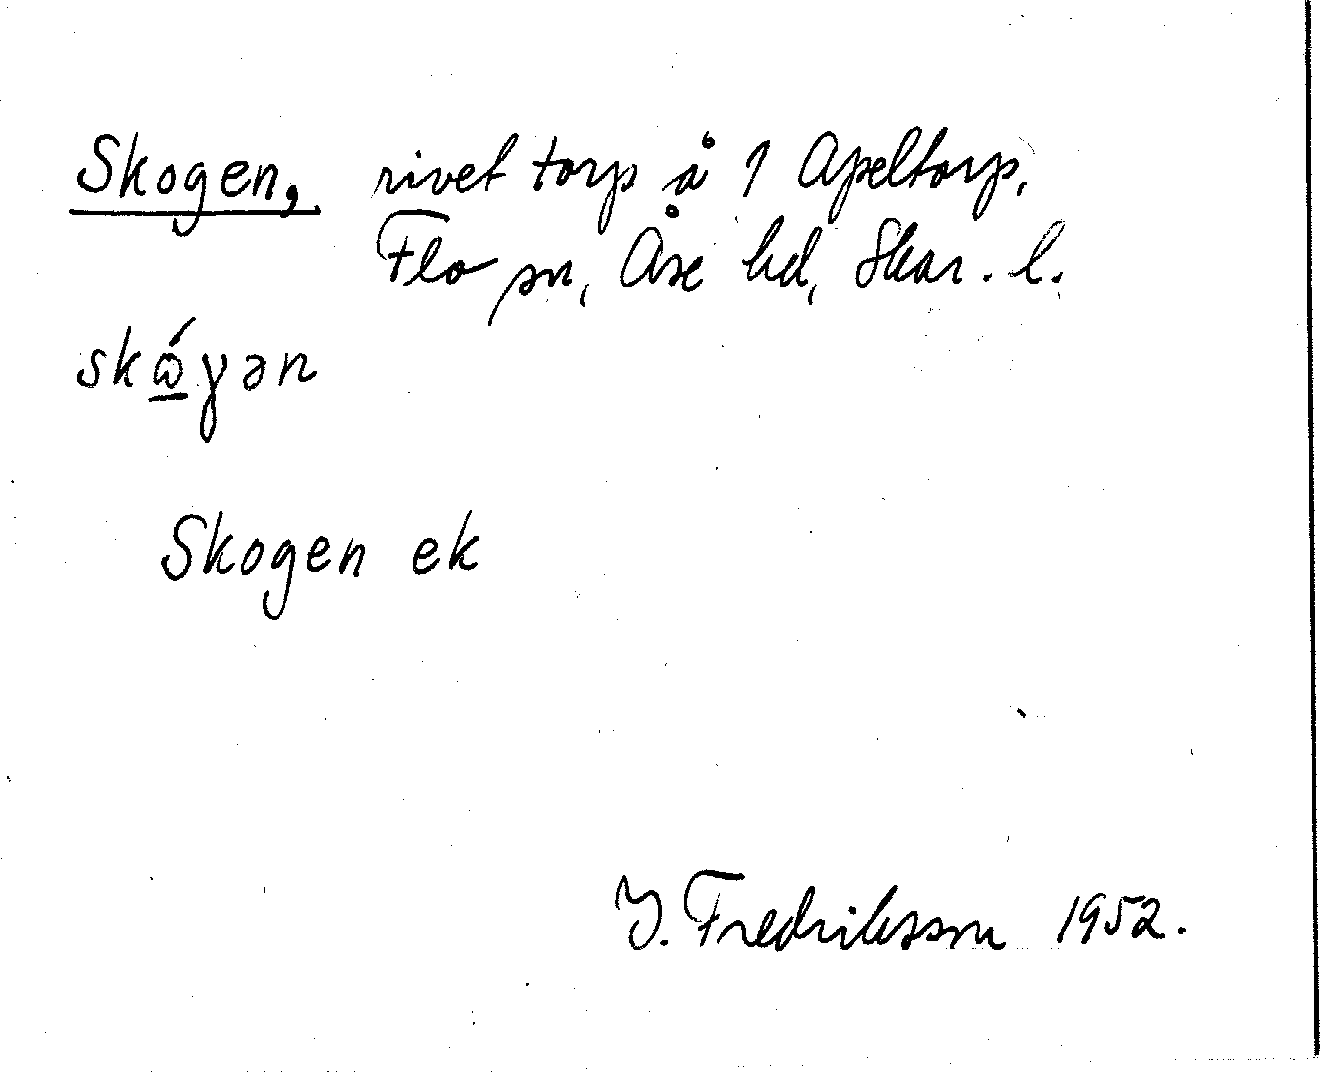 Skogen, rivet torp å 1 Apeltorp,
Flo sn, Åse hd, Skar. l.
skώ̲γən
Skogen ek
I. Fredriksson 1952.